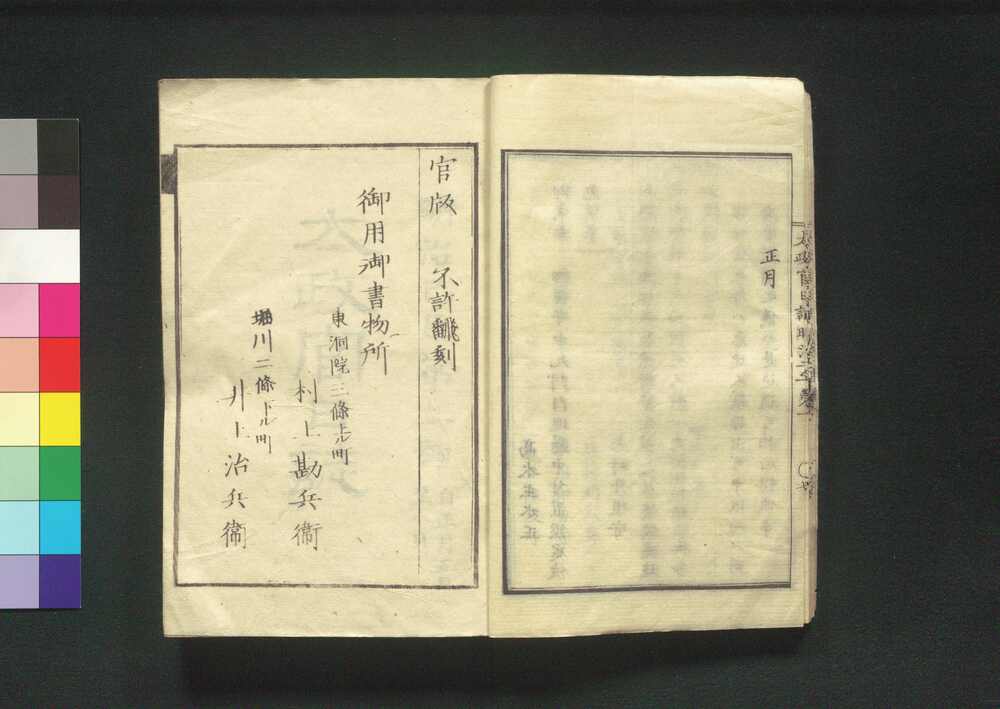 太政官日誌明治二年
正月
官版 不許翻刻
御用御書物所
東洞院三條上ル町
村上勘兵衞
堀川二條下ル町
井上治兵衞